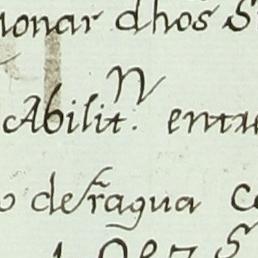 ionar dhos S
N
Abilit. entra
o de fragua C